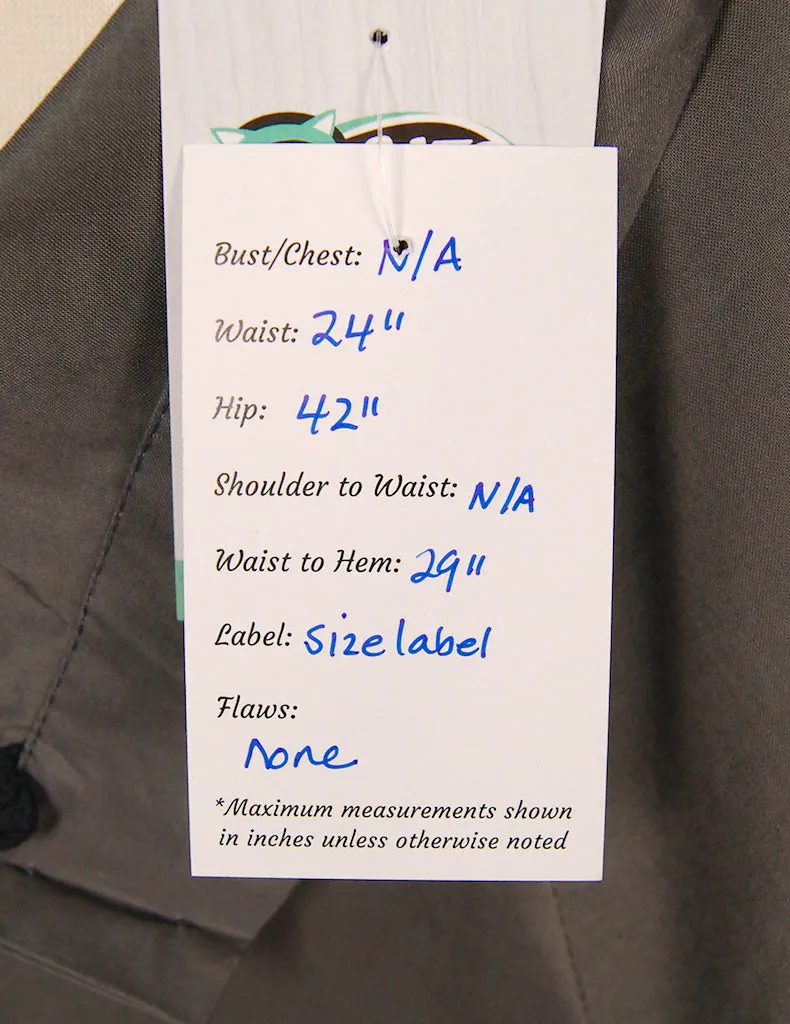 Bust/Chest: N/A
Waist: 24"
Hip: 42"
Shoulder to Waist: N/A
Waist to Hem: 29"
Label: Size label
Flaws:
None
*Maximum measurements shown
in inches unless otherwise noted